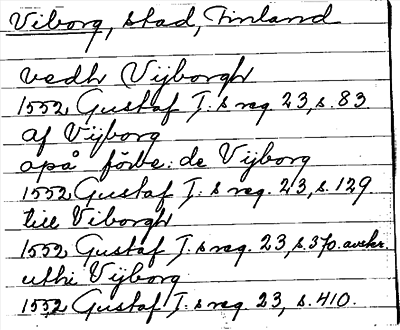 Viborg, stad, Finland
vedh Vijborgh
1552 Gustaf I:s reg. 23, s. 83.
af Vijborg
opå förbe: de Vijborg
1552 Gustaf I:s reg. 23, s. 129.
till Viborgh
1552 Gustaf I:s reg. 23, s. 370. avskr.
uthi Vijborg
1552 Gustaf I:s reg. 23, s. 410.